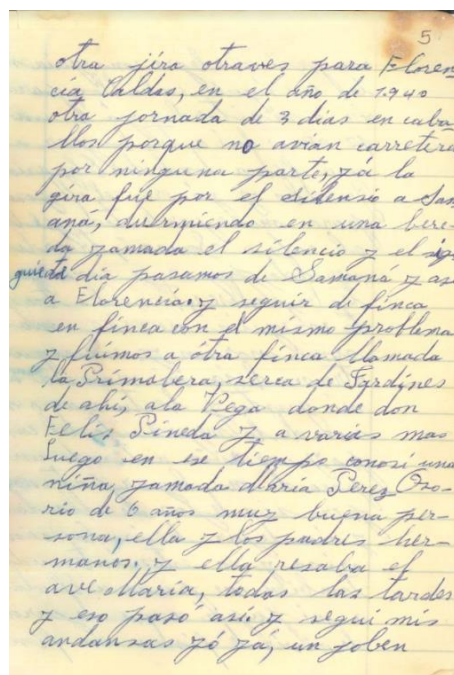 5
otra jira otraves para Floren
cia Caldas, en el año de 1.940
otra jornada de 3 dias en caba
llos porque no avían carretera
por ninguna parte, yá la
gira fue por el silensio a Sam
aná, durmiendo en una bere-
da yamada el silencio y el si
guiente dia pasamos de Samaná y así
a Florencia. y seguir de finca
en finca con el mismo problema
y fuimos a ótra finca llamada
la Primabera, serca de Jardines
de ahí, ala Vega donde don
Felix Pineda y a varios mas
Luego en ese tiempo conosí una
niña yamada María Perez Oso-
rio de 6 años muy buena per-
sona, ella y los padres her-
manos. y ella resaba el
ave María, todas las tardes
y eso pasó así. y seguí mis
andansas yó yá, un joben